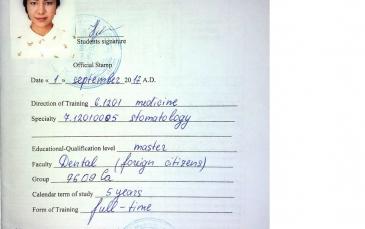 Students signature
Official Stamp
Date « 1 » september 2012 A.D.
Direction of Training 6.1201 medicine
Specialty 7.12010005 stomatology
Educational-Qualification level master
Faculty Dental (foreign citizens)
Group 9609 La
Calendar term of study 5 years
Form of Training full-time